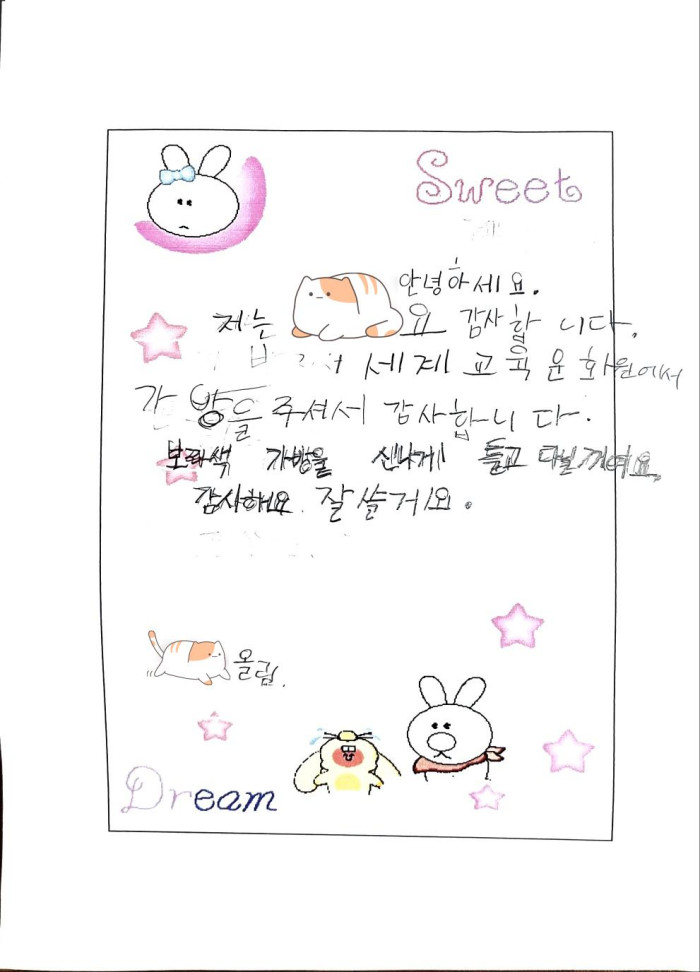 Sweet
안녕하세요.
저는 요 감사합니다.
세계교육문화원에서
가방을 주셔서 감사합니다.
보라색 가방을 신나게 들고 다닐꺼예요.
감사해요. 잘 쓸거요.
올림.
Dream